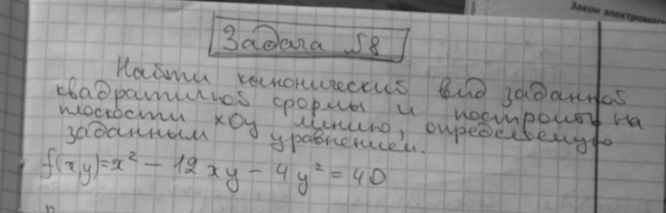 Закон электромаг
Задача №8
Найти канонический вид заданной
квадратичной формы и построить на
плоскости xOy линию, определяемую
заданным уравнением.
f(x,y)=x² − 12xy − 4y² = 40